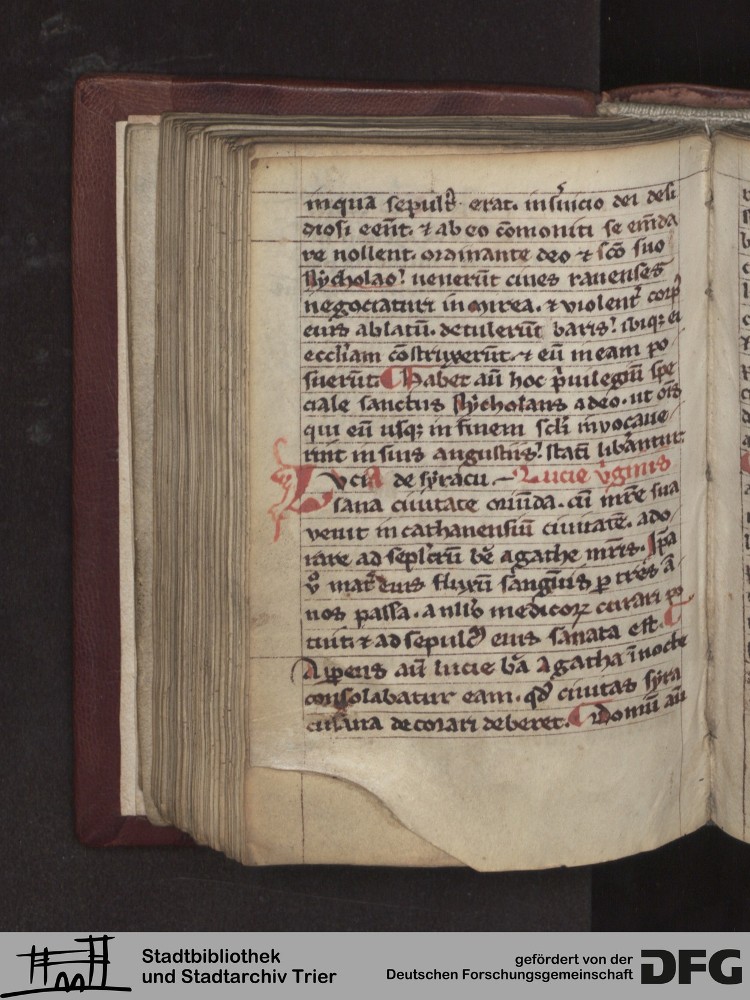 inqua sepult᷒ erat. inẜuicio dei desi
diosi eēnt. ⁊ ab eo cōmoniti se em̄da
re nollent. ordinante deo ⁊ sc̄o suo
Nycholao. uenerūt ciues rauenses
negociaturi in mirea. ⁊ violent᷒ corp᷒
eius ablatū. detulerūt baris. ibiqꝫ ei
eccl̄iam cōstruxerūt. ⁊ eū in eam po
suerūt. Habet aū hoc p̄uilegiū spe
ciale sanctus Nycholaus a deo. ut om̄s
qui eū usqꝫ in finem scl̄i inuocaue
rint in suis augustiis. statī lib̾antur.
Lucia de syracu. Lucie v̾ginis
sana ciuitate oriūda. cū mr̄e sua
venit in cathanensiū ciuitatē. ado
rare ad sepl̾crū bē agathe mr̄is. Ip̄a
v̾o mat̾ eius fluxū sangīnis ꝑ tres ā
nos passa. a nll̾o medicoꝝ curari po
tuit. ⁊ ad sepulc̾ eius sanata est.
Apperens aū lucie bā Agatha ī nocte
consolabatur eam. qd̾ ciuitas syra
cusana decorari deberet. Domū aū
Stadtbibliothek
und Stadtarchiv Trier
gefördert von der
Deutschen Forschungsgemeinschaft DFG